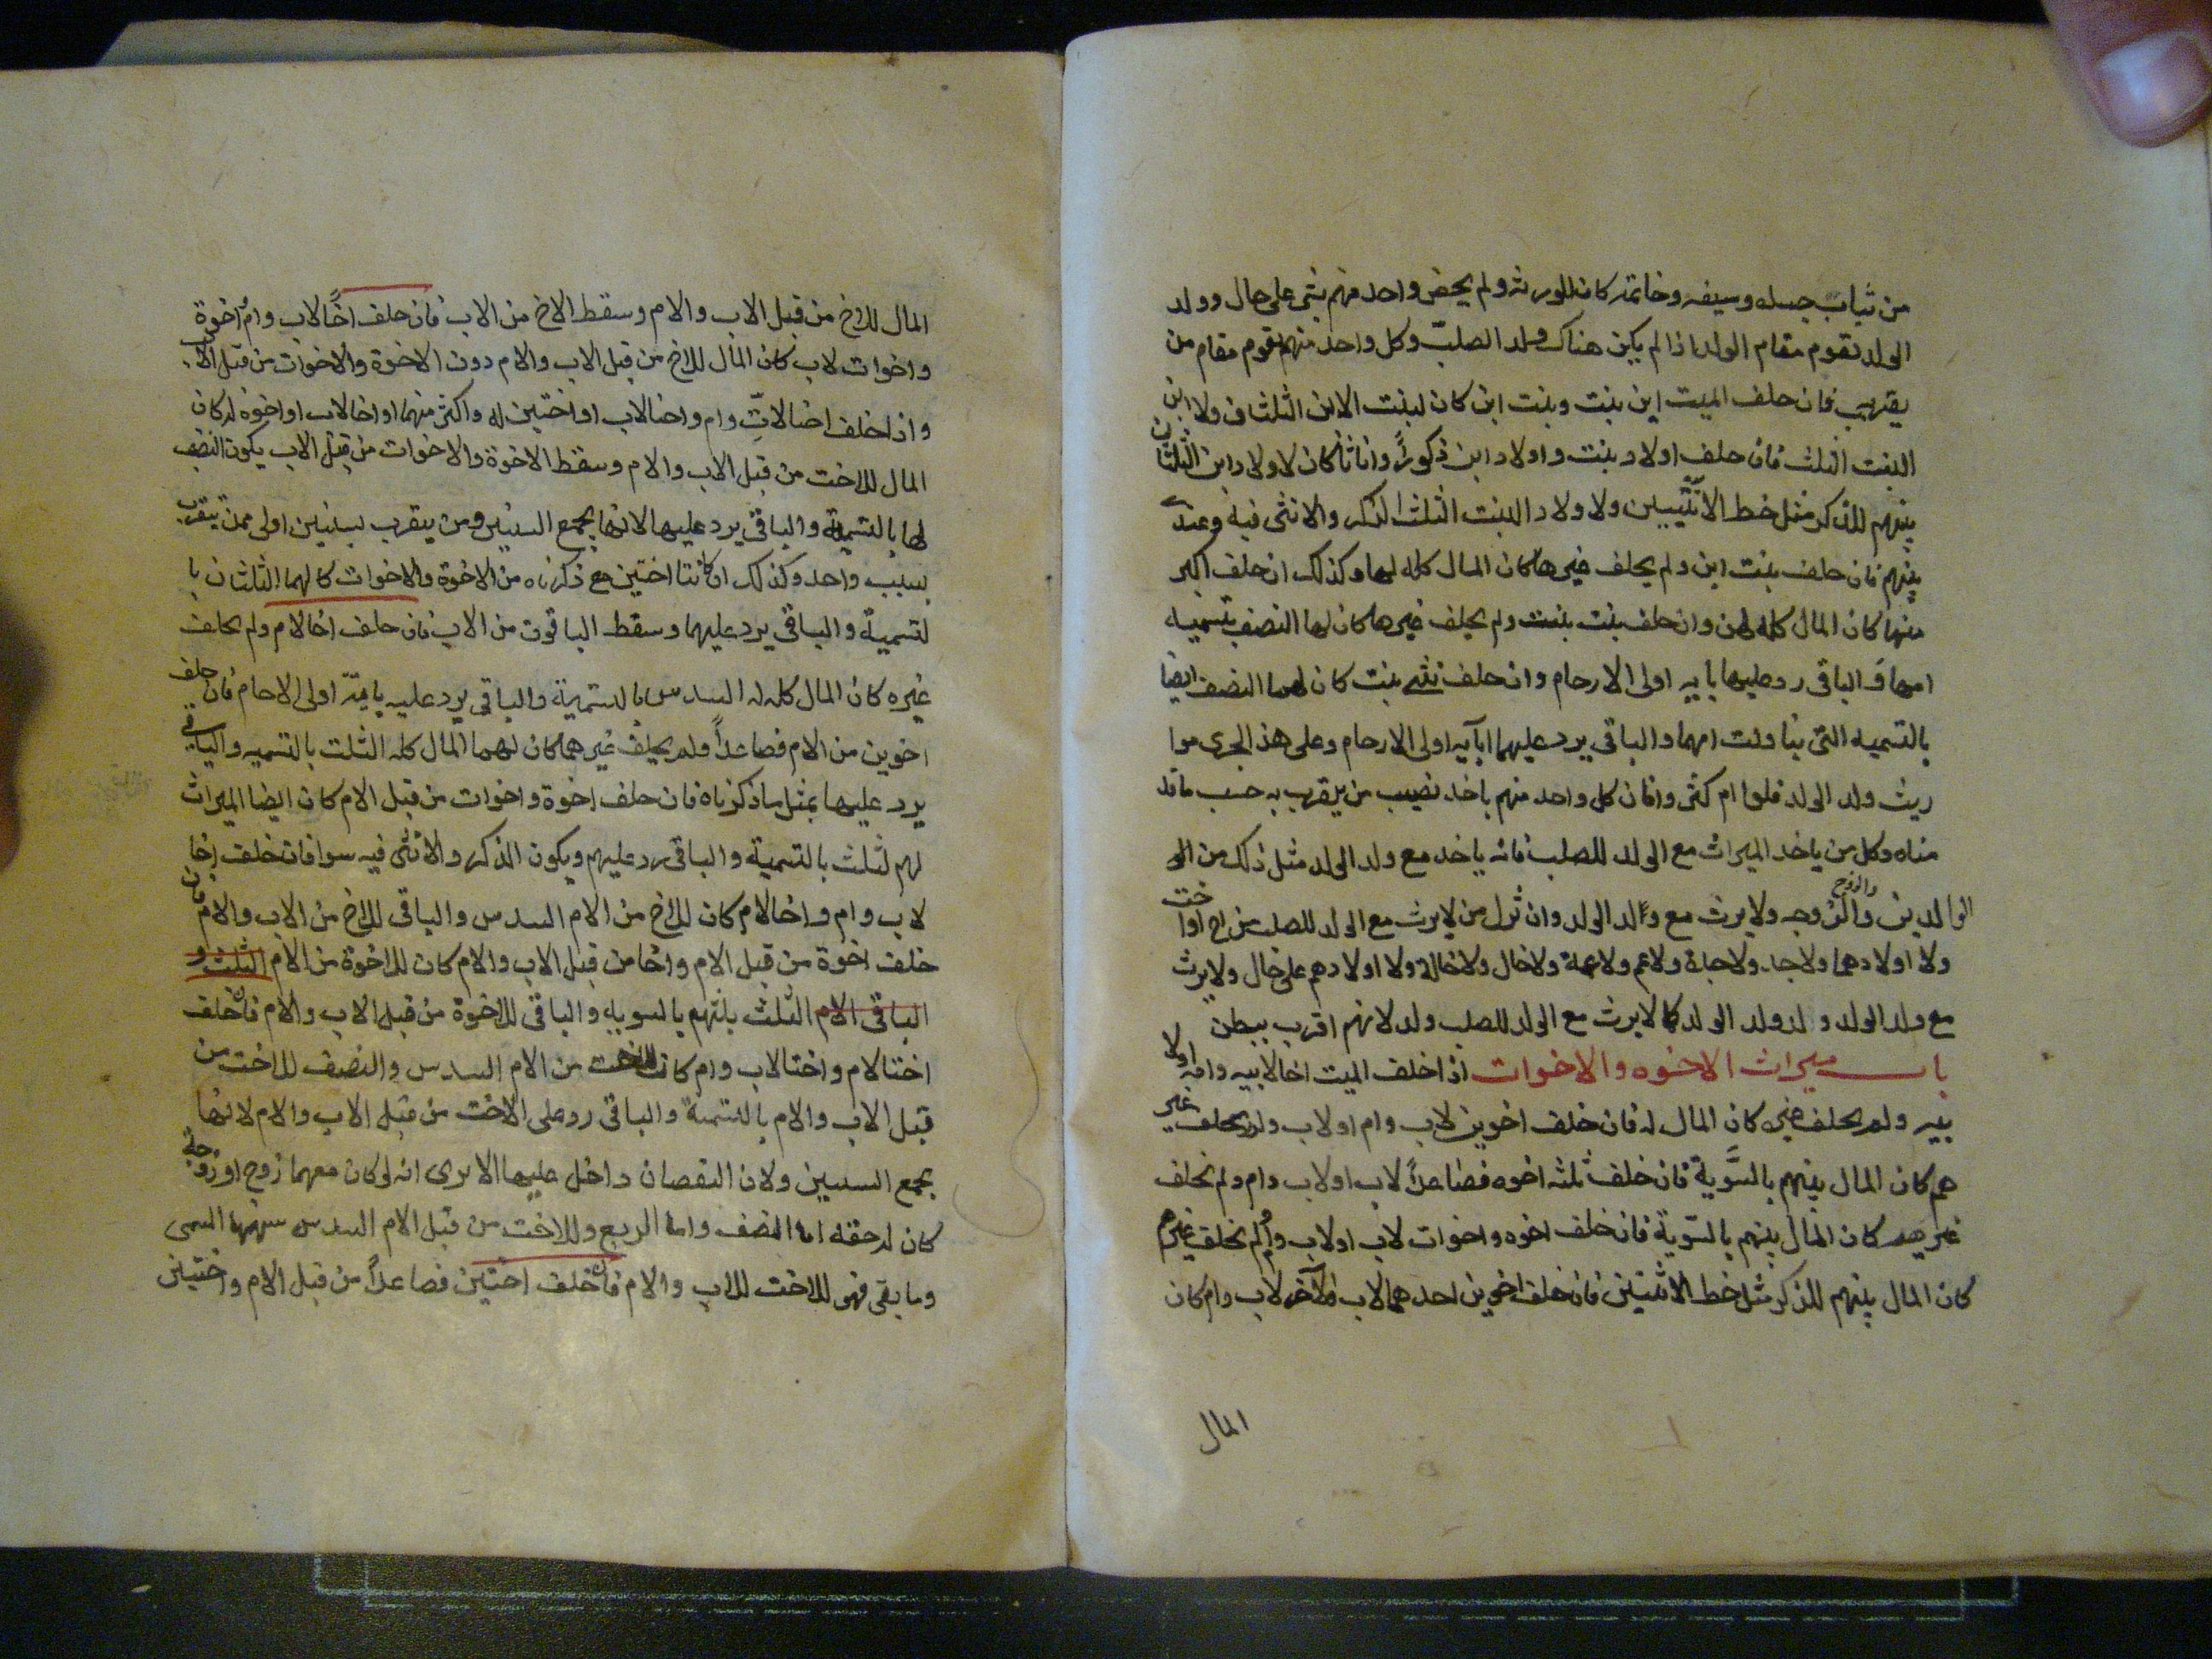 من ثياب جسله وسيفه وخاتمه كان للورثه ولم يخص واحد منهم بشى على حال وولد
الولد تقوم مقام الولد اذا لم يكن هناك ولد الصلب وكل واحد منهم يقوم مقام من
يقترب فان خلف الميت ابن بنت وبنت ابن كان لبنت الابن الثلثان ولابن
البنت الثلث فان خلف اولاد بنت واولاد ابن ذكوراً واناثاً كان لاولاد ابن الثلثان
بينهم للذكر مثل حظ الانثيين ولاولاد البنت الثلث الذكر والانثى فيه وعندى
بينهم فان خلف بنت ابن ولم يخلف غيرها كان المال كله لها وكذلك ان خلف اكثر
منها كان المال كله لهن وان خلف بنت بنت ولم يخلف غيرها كان لها النصف بتسميه
امها والباقى رد عليها بأيه اولى الارحام وان خلف بنتى بنت كان لهما النصف ايضا
بالتسميه التى تناولت امهما والباقى يرد عليهما بأيه اولى الارحام وعلى هذا لجرى موا
ريث ولد الولد قلوا ام كثروا فان كل واحد منهم ياخذ نصيب من يقرب به حسب ما قد
مناه وكل من ياخذ الميراث مع الولد للصلب فانه ياخذ مع ولد الولد مثل ذلك من الو
الوالدين والزوج والزوجه ولا يرث مع ولد الولد وان نزل من لا يرث مع الولد للصلب من اخ او اخت
ولا اولادهما ولا جد ولا جدة ولا عم ولا عمة ولا خال ولا خالة ولا اولادهم على حال ولا يرث
مع ولد الولد ولد ولد الولد كما لا يرث مع الولد للصلب ولد لانهم اقرب ببطن
باب ميراث الاخوه والاخوات اذا خلف الميت اخا لابيه وامه اولا
بيه ولم يخلف غيره كان المال له فان خلف اخوين لاب وام او لاب ولم يخلف غير
هم كان المال بينهم بالسَّوية فان خلف ثلثه اخوه فصاعداً لاب او لاب وام ولم يخلف
غيرهم كان المال بينهم بالسّوية فان خلف اخوه واخوات لاب او لاب وام ولم يخلف غيرهم
كان المال بينهم للذكر مثل حظ الانثيين فان خلف اخوين احدهما لاب والآخر لاب وام كان
المال
المال للاخ من قبل الاب والام وسقط الاخ من الاب فان خلف اخاً لاب وام واخوة
واخوات لاب كان المال للاخ من قبل الاب والام دون الاخوة والاخوات من قبل الاب
واذا خلف اختا لابٍّ وام واختا لاب او اختين له واكثر منهما او اخا لاب او اخوة له كان
المال للاخت من قبل الاب والام وسقط الاخوة والاخوات من قبل الاب يكون النصف
لها بالتسمية والباقى يرد عليها لانها تجمع السببين ومن يتقرب بسببين اولى ممن يتقرب
بسبب واحد وكذلك ان كانتا اختين مع ذكرناه من الاخوة والاخوات كا لهما الثلثان با
لتسمية والباقى يرد عليهما وسقط الباقون من الاب فان خلف اخا لام ولم يخلف
غيره كان المال كله له السدس بالتسمية والباقى يرد عليه باية اولى الارحام فان خلف
اخوين من الام فصاعداً ولم يخلف غيرهما كان لهما المال كله الثلث بالتسميه والباقى
يرد عليها بمثل ما ذكرناه فان خلف اخوة واخوات من قبل الام كان ايضا الميراث
لهم لثلث بالتسمية والباقى رد عليهم ويكون الذكر والانثى فيه سوا فان خلف اخا
لاب وام واخا لام كان للاخ من الام السدس والباقى للاخ من الاب والام فان
خلف اخوة من قبل الام واخا من قبل الاب والام كان للاخوة من الام الثلث و
الباقى الام الثلث بينهم بالسويه والباقى للاخوة من قبل الاب والام فان خلف
اختا لام واختا لاب وام كان للاخت من الام السدس والنصف للاخت من
قبل الاب والام بالتسمية والباقى رد على الاخت من قبل الاب والام لانها
تجمع السببين ولان النقصان داخل عليها الا يرى انه لو كان معهما زوج او زوجة
كان له حقه اما النصف واما الربع وللاخت من قبل الام السدس سهمها المسمى
وما بقى فهو للاخت للاب والام فان خلف اختين فصاعداً من قبل الام واختين